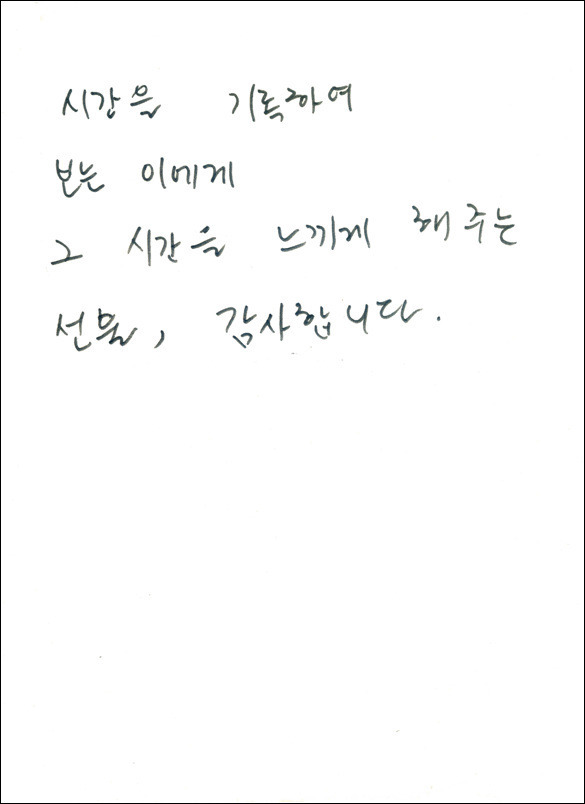 시간을 기록하여
보는 이에게
그 시간을 느끼게 해주는
선물, 감사합니다.